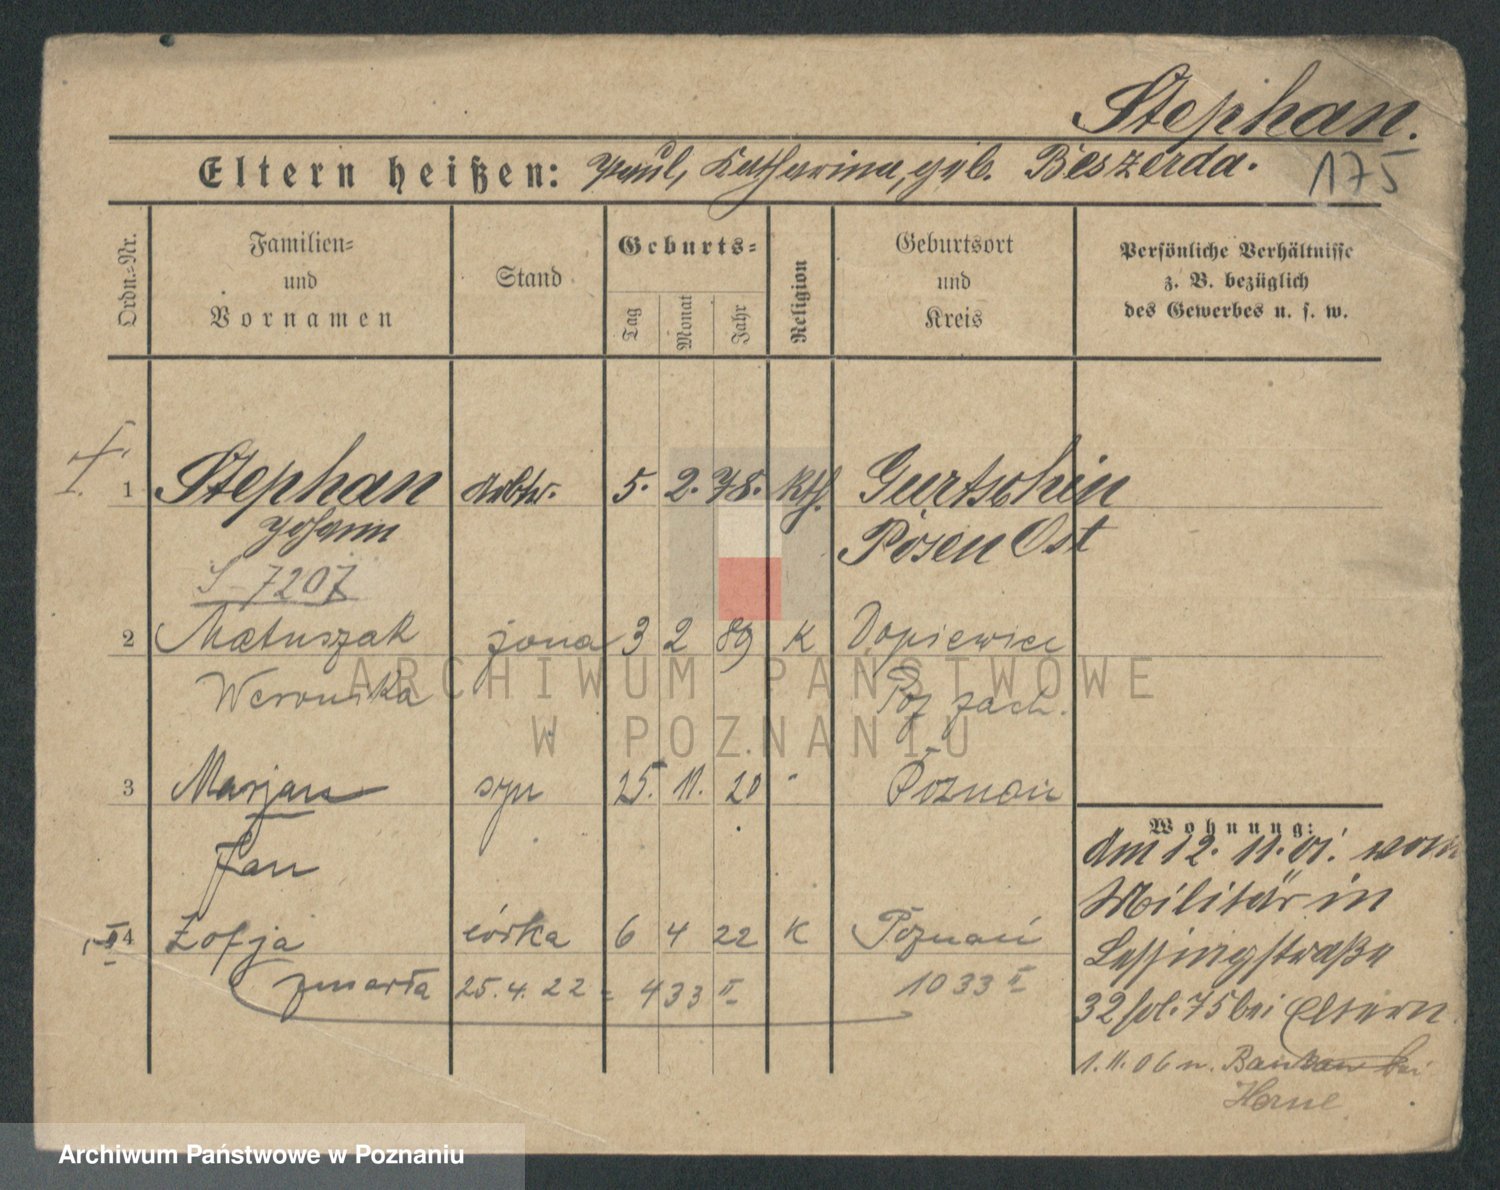 Stephan.
Eltern heißen: Paul, Katharina, geb. Beszerda.
175
Ordn.-Nr.
Familien- und Vornamen
Stand
Geburts-
Tag
Monat
Jahr
Religion
Geburtsort und Kreis
Persönliche Verhältnisse
z. B. bezüglich
des Gewerbes u. s. w.
1 Stephan Arbtr. 5. 2. 78. Kth. Gurtschin
Johann Posen Ost
S-7207
2 Matuszak żona 3 2 89 K Dopiewiec
Weronika Poz zach.
3 Marjan syn 25. 11. 20 " Poznań
Jan
4 Zofja córka 6 4 22 K Poznań
zmarła 25.4.22 = 433 II 1033 II
Wohnung:
Am 12. 11. 01. vom
Militär in
Lessingstraße
32 fol. 75 bei Eltern
1.11.06 n. Baukau bei
Herne
ARCHIWUM PAŃSTWOWE
W POZNANIU
Archiwum Państwowe w Poznaniu